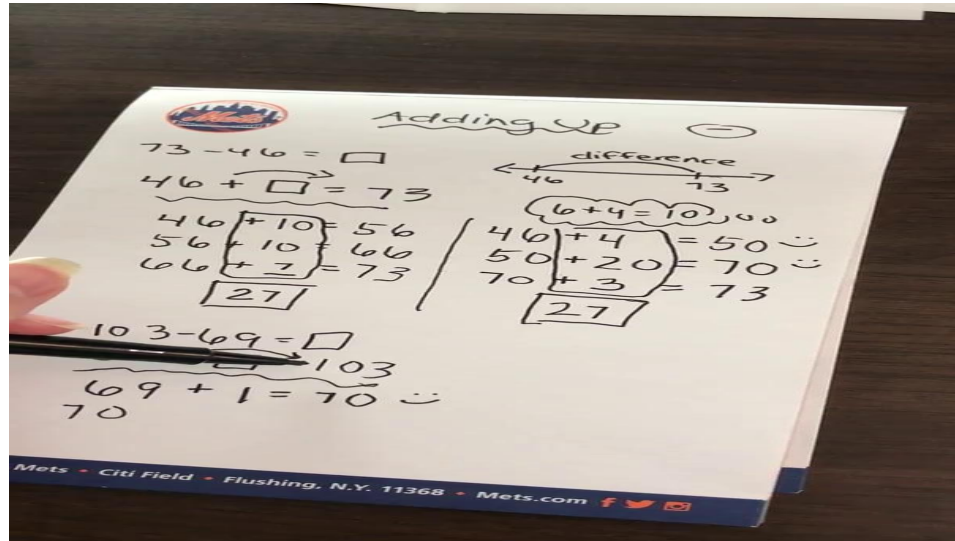 Mets
Adding Up −
73 - 46 = □
46 + □ = 73
46 + 10 = 56
56 + 10 = 66
66 + 7 = 73
27
difference
46 73
6 + 4 = 10
46 + 4 = 50
50 + 20 = 70
70 + 3 = 73
27
103 - 69 = □
103
69 + 1 = 70
70
Mets • Citi Field • Flushing, N.Y. 11368 • Mets.com